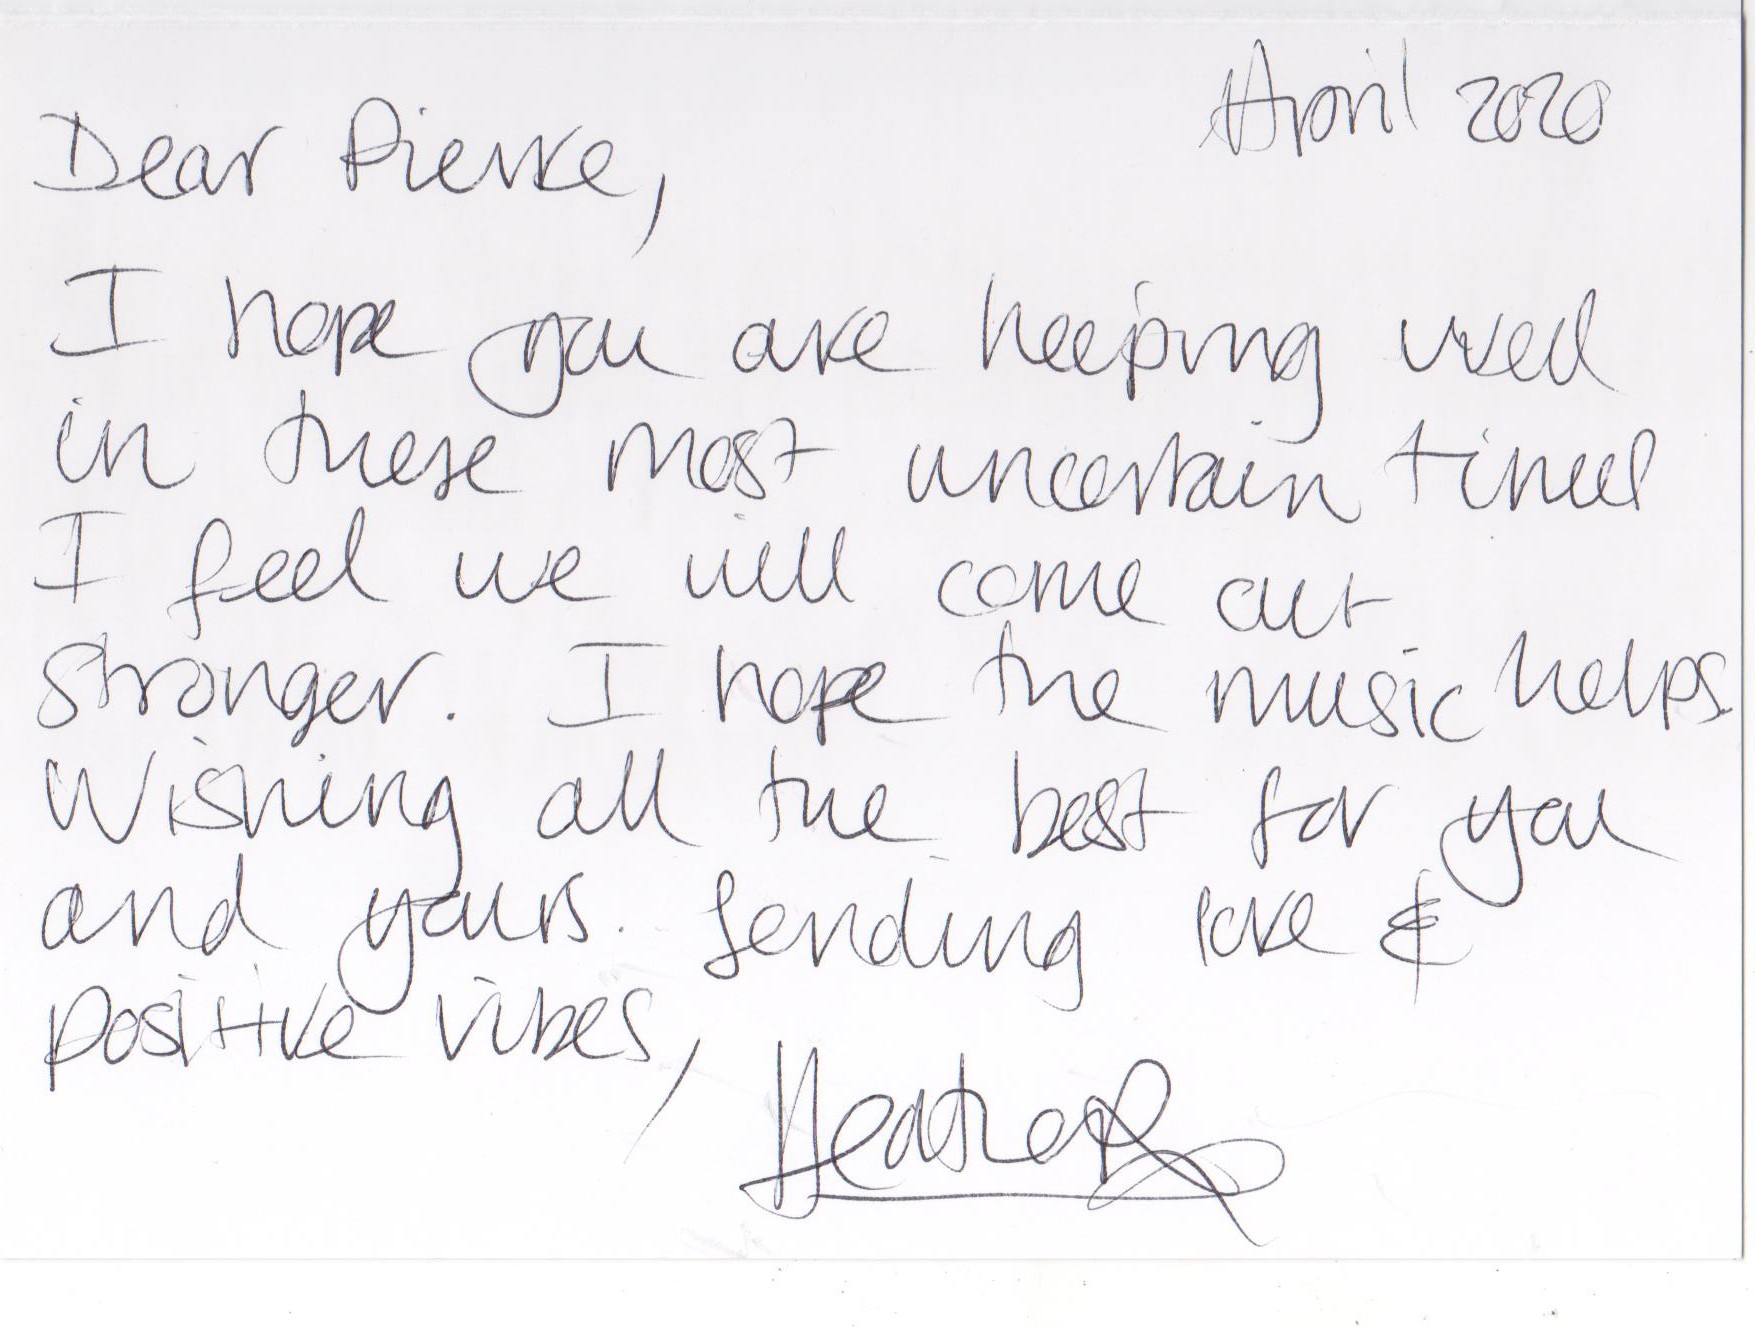 April 2020
Dear Pierre,
I hope you are keeping well
in these most uncertain times
I feel we will come out
stronger. I hope the music helps.
Wishing all the best for you
and yours. Sending love &
positive vibes,
Heather